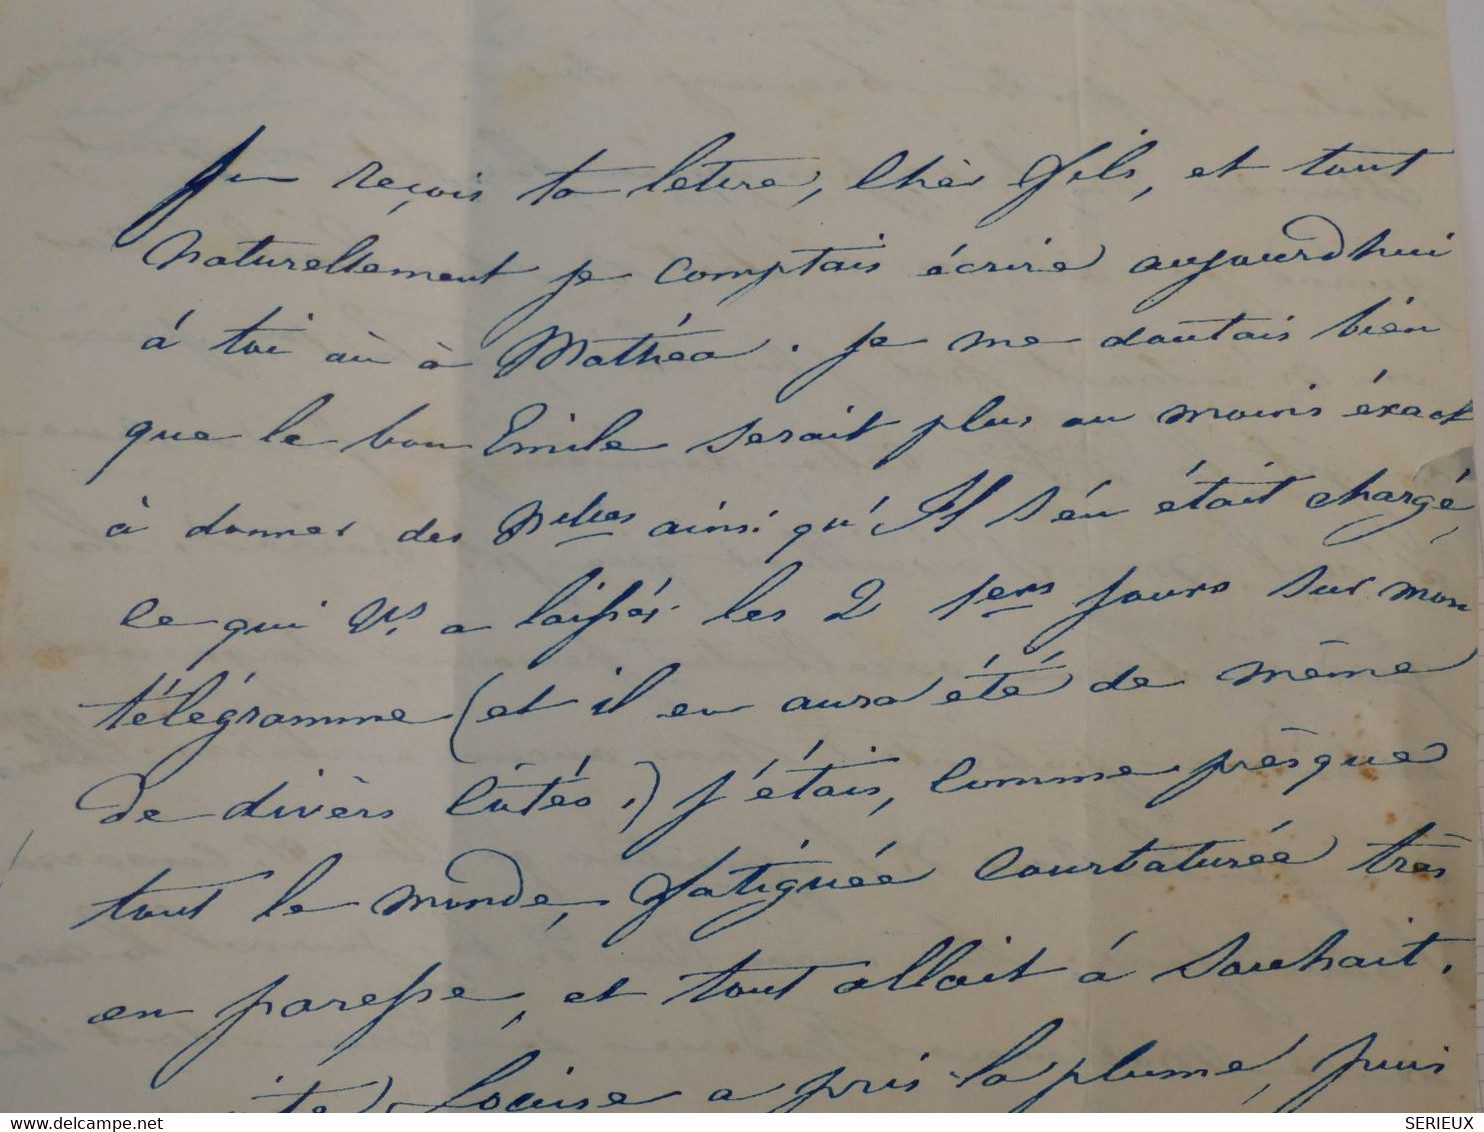 Je reçois ta lettre, cher Fils, et tout
naturellement je comptais écrire aujourdhui
à toi où à Mathéa. je me doutais bien
que le bon Emile serait plus ou moins éxact
à donner des nlles ainsi qu'Il s'én était chargé,
ce qui vs a laissés les 2 1ers jours sur mon
télégramme (et il en aura été de même
de divèrs côtés.) j'étais, comme présque
tout le monde, fatiguée courbaturée très
en paresse, et tout allait à souhait.
Louise a pris la plume, puis
delcampe.net
SERIEUX